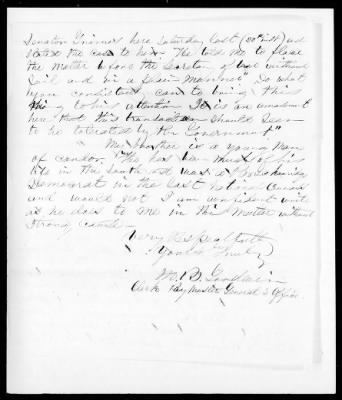 Senator Grimes here Saturday last (30th ult) and
stated the case to him. He told me to place
the matter before the Secretary of War without
fail and in a plain manner". Do what
you consistently can to bring this
thing to his attention. It is an
here that this transaction should seem
to be tolerated by the Government"
My brother is a young man
of candor. He has been much of his
life in the South and was a
Democrat in the last national
and would not I am confident write
as he does to me in this matter without
strong cause.
Very Respectfully
Yours Truly
Wm. B. Goodwin
Clerk Paymaster General's Office